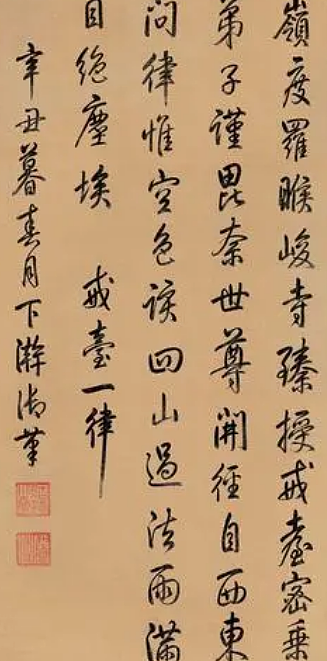 嶺度羅睺峻寺臻授戒臺密乘
弟子謹毘奈世尊開徑自西東
問律惟空色該四山過法雨滿
目絕塵埃 戒臺一律
辛丑暮春月下澣御筆